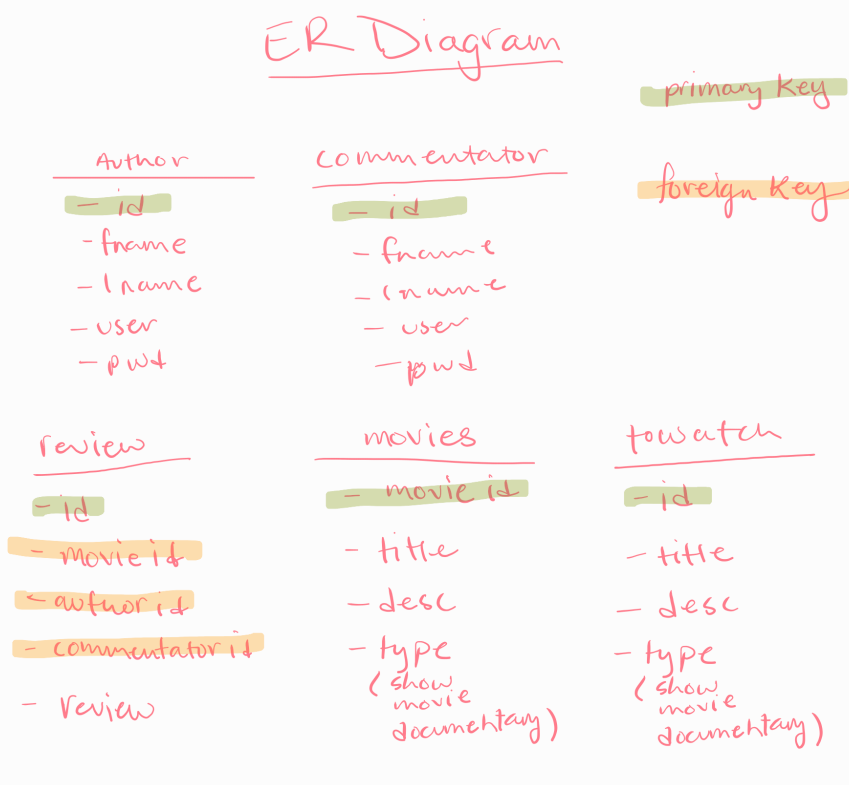 ER Diagram
primary Key
foreign Key
Author
- id
- fname
- lname
- user
- pwd
commentator
- id
- fname
- lname
- user
- pwd
review
- id
- movie id
- author id
- commentator id
- review
movies
- movie id
- title
- desc
- type
(show
movie
documentary)
towatch
- id
- title
- desc
- type
(show
movie
documentary)